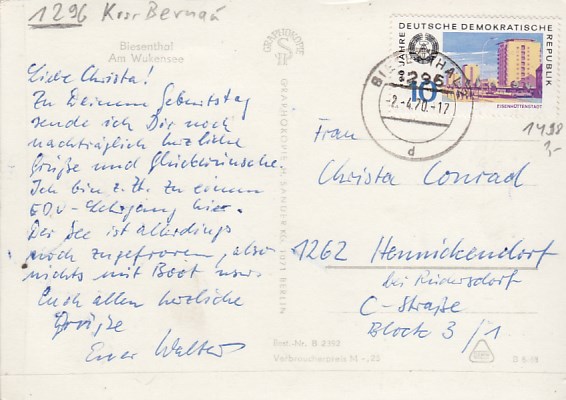 1296 Krs. Bernau
Biesenthal
Am Wukensee
Liebe Christa!
Zu Deinem Geburtstag
sende ich Dir noch
nachträglich herzliche
Grüße und Glückwünsche.
Ich bin z. Zt. zu einem
EDV-Lehrgang hier.
Der See ist allerdings
noch zugefroren, also
nichts mit Boot usw.
Euch allen herzliche
Grüße
Euer Walter
GRAPHOKOPIE
GRAPHOKOPIE H. SANDER KG, 1071 BERLIN
20 JAHRE DEUTSCHE DEMOKRATISCHE REPUBLIK
10
EISENHÜTTENSTADT
BIESENTHAL
-2.-4.70.-17
d
1498
1,-
Frau
Christa Conrad
1262 Hennickendorf
bei Rüdersdorf
C-Straße
Block 3/1
Best.-Nr. B 2992
Verbraucherpreis M -,20